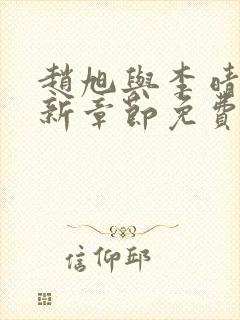 趙旭與李晴
新章節免費
信仰邱